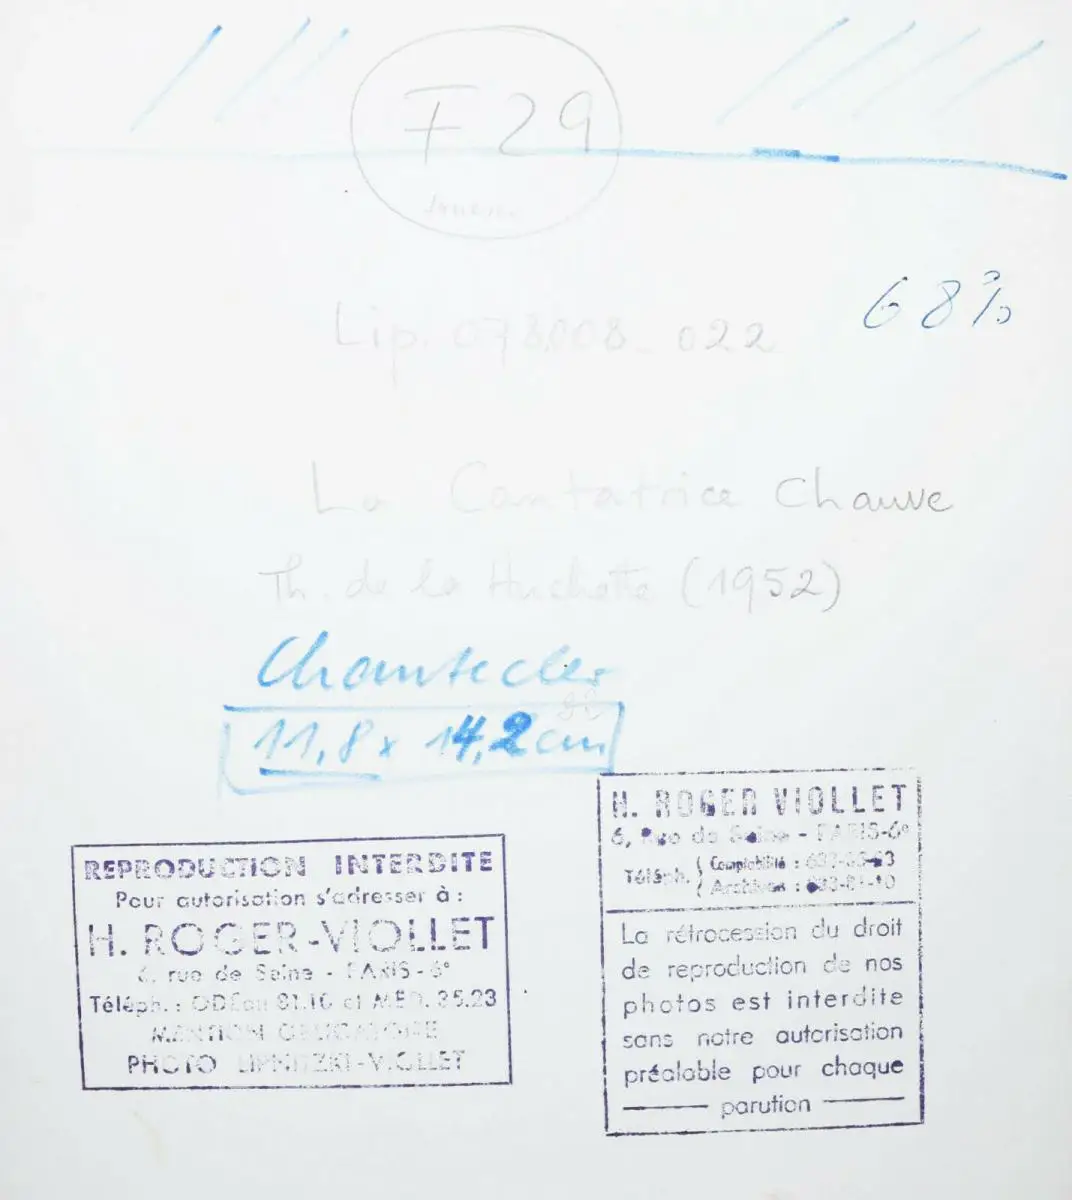 F 29
68%
Lip. 073008_022
La Cantatrice Chauve
Th. de la Huchette (1952)
Chantecler
11,8 x 14,2 cm
H. ROGER VIOLLET
6, Rue de Seine - PARIS-6e
Téléph. Comptabilité :
Archives : 033-81-10
La rétrocession du droit
de reproduction de nos
photos est interdite
sans notre autorisation
préalable pour chaque
parution
REPRODUCTION INTERDITE
Pour autorisation s'adresser à :
H. ROGER-VIOLLET
6, rue de Seine - PARIS-6e
Téléph. : ODÉon 81.10 et MÉD. 35.23
MENTION OBLIGATOIRE
PHOTO LIPNITZKI-VIOLLET